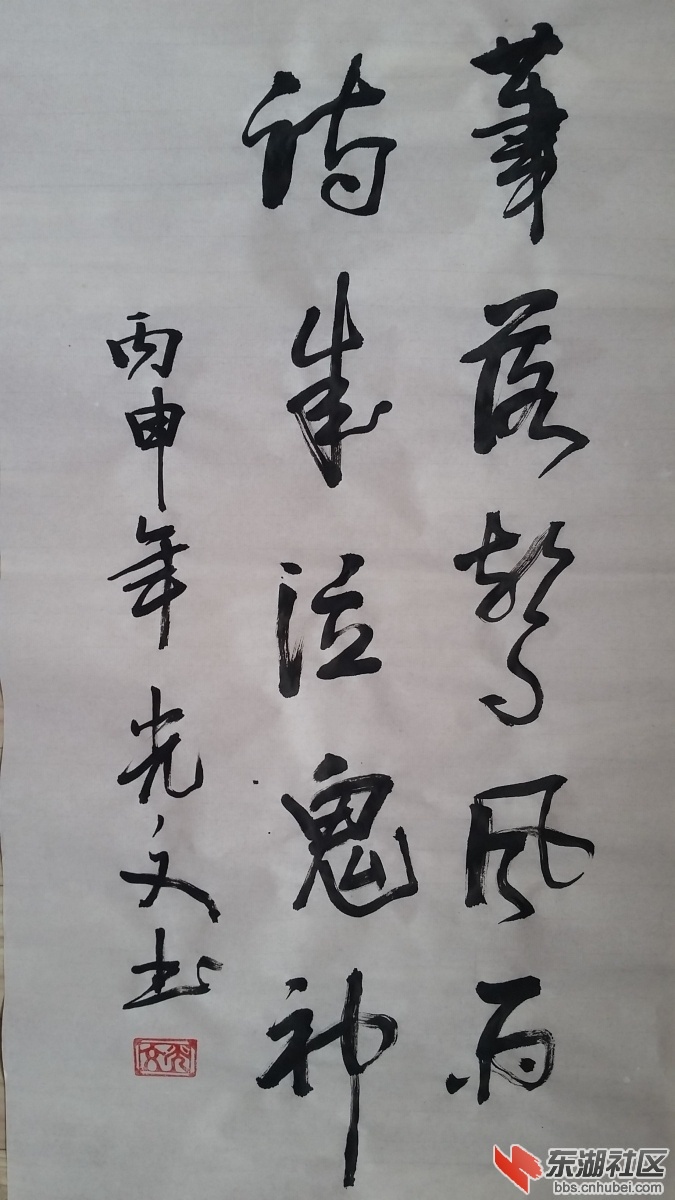 筆落驚风雨
诗成泣鬼神
丙申年 光文书
光文
东湖社区
bbs.cnhubei.com